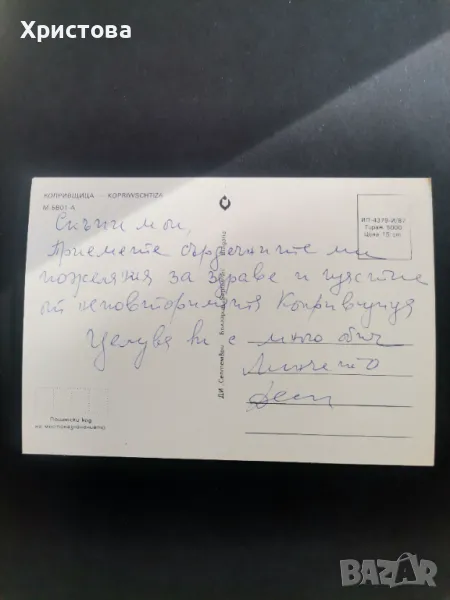 Христова
КОПРИВЩИЦА — KOPRIWSCHTIZA
М 6801-А
ИП-4378-И/87
Тираж 5000
Цена 15 ст.
Скъпи мои,
Приемете сърдечните ми
пожелания за здраве и щастие
от неповторимата Копривщица
Целува ви с много обич
ДИ „Септември“
Пощенски код
на местоназначението
bazar